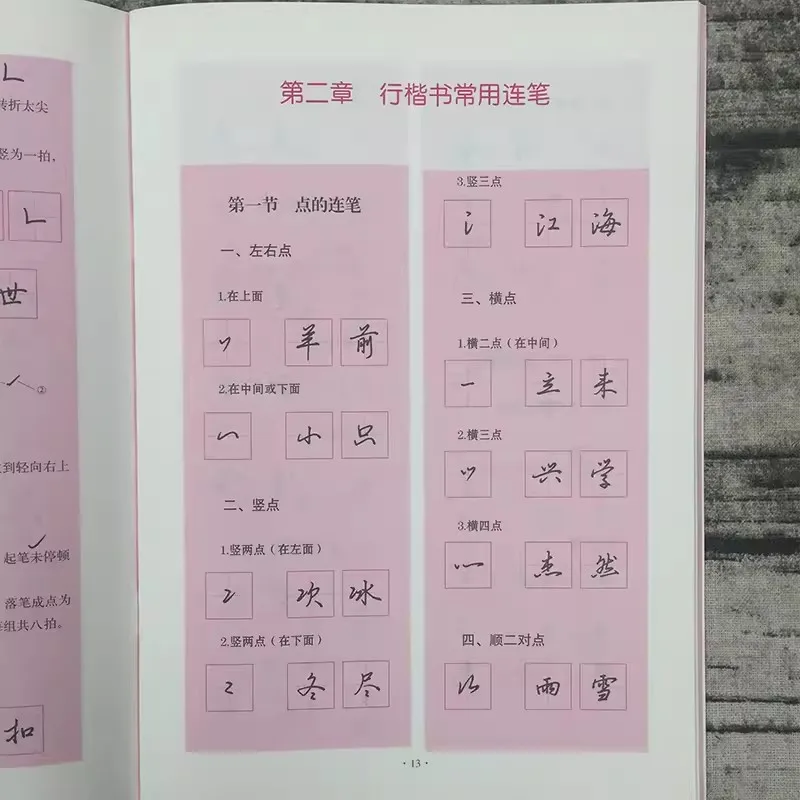 转折太尖
竖为一拍,
世
②
到轻向右上
起笔未停顿
落笔成点为
组共八拍。
扣
第二章 行楷书常用连笔
第一节 点的连笔
一、左右点
1.在上面
丷 羊 前
2.在中间或下面
小 只
二、竖点
1.竖两点(在左面)
冫 次 冰
2.竖两点(在下面)
冬 尽
3.竖三点
氵 江 海
三、横点
1.横二点(在中间)
立 来
2.横三点
兴 学
3.横四点
灬 杰 然
四、顺二对点
雨 雪
·13·